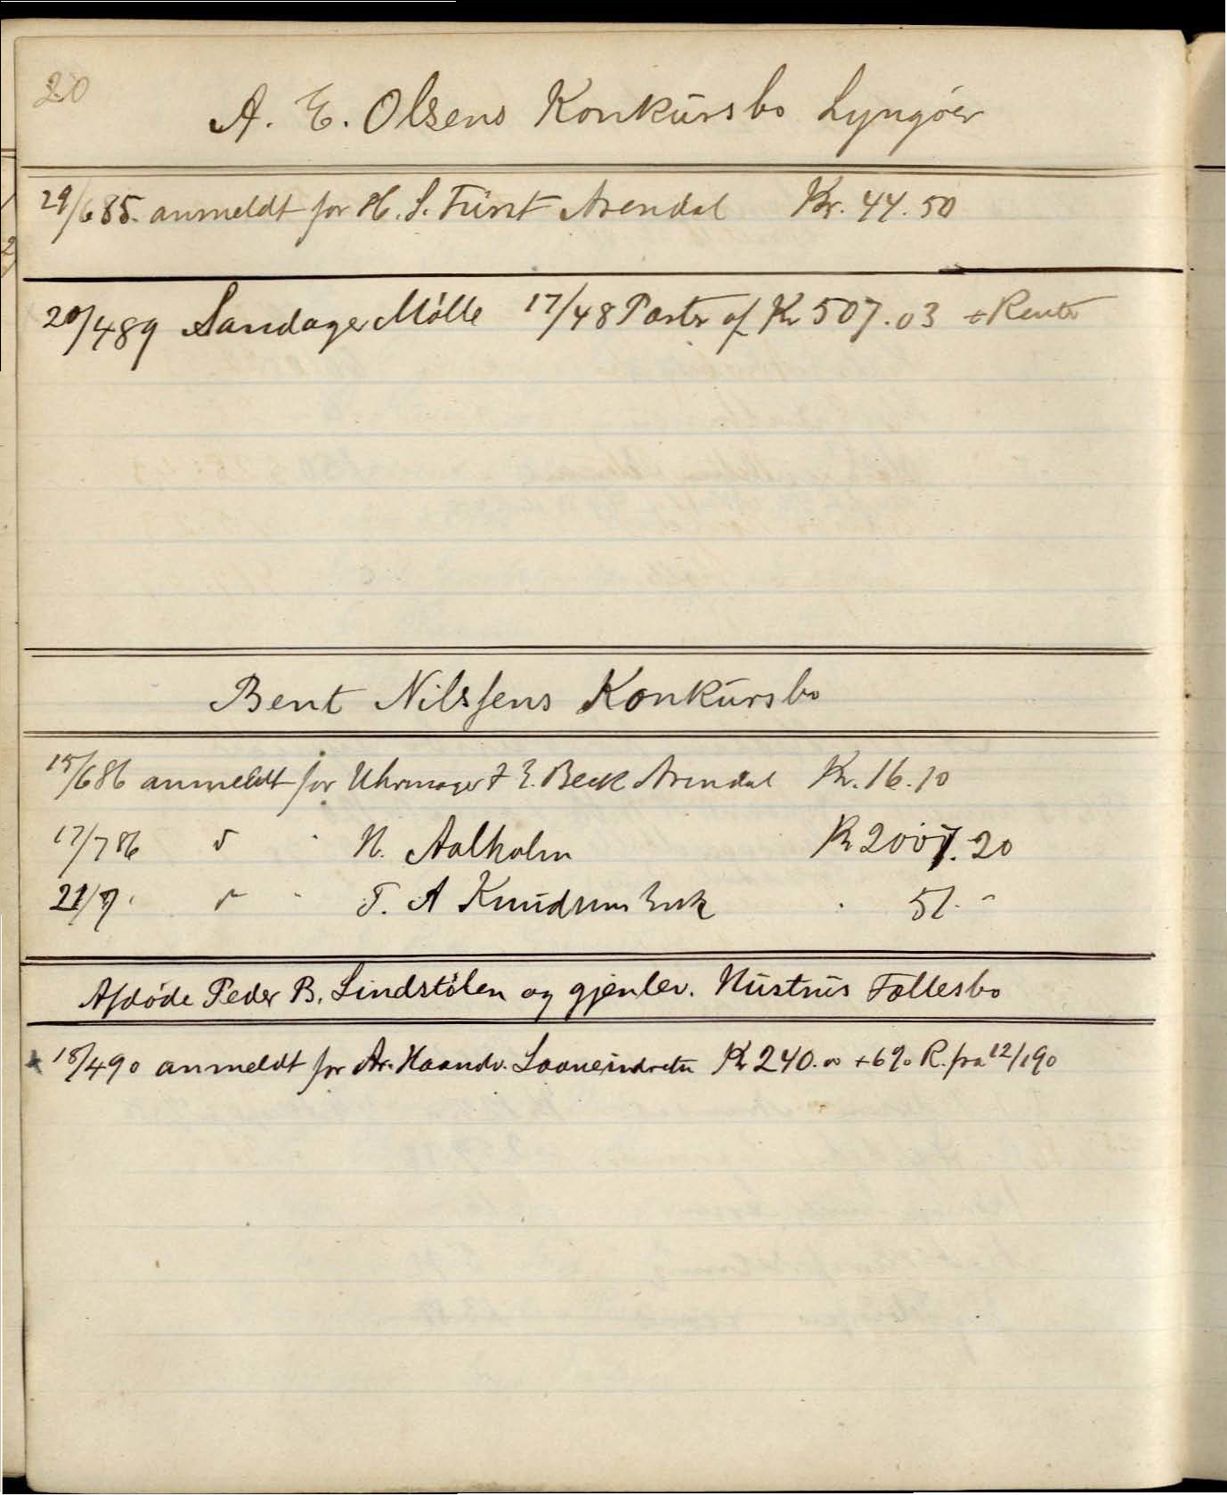 20
A. E. Olsens Konkursbo Lyngöer
29/6 85. anmeldt for H. S. Fürst Arendal Kr. 44.50
20/4 89 Sandager Mölle 17/48 Parter af Kr 507.03 + Renter
Bent Nilssens Konkursbo
15/6 86 anmeldt for Uhrmager E. Beck Arendal Kr. 16.10
17/7 86 d " N. Aalholm Kr 2007.20
21/7. " " T. A Knudsens Enk . 51.-
Afdöde Peder B. Lindstölen og gjenlev. Hustrus Fællesbo
18/4 90 anmeldt for Ar. Haandv. Laaneindretn Kr 240.00 + 6% R. fra 12/1 90